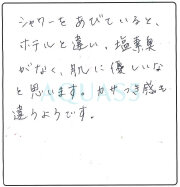 シャワーをあびていると、
ホテルと違い、塩素臭
がなく、肌に優しいな
と思います。かさつき感も
違うようです。
AQUASS